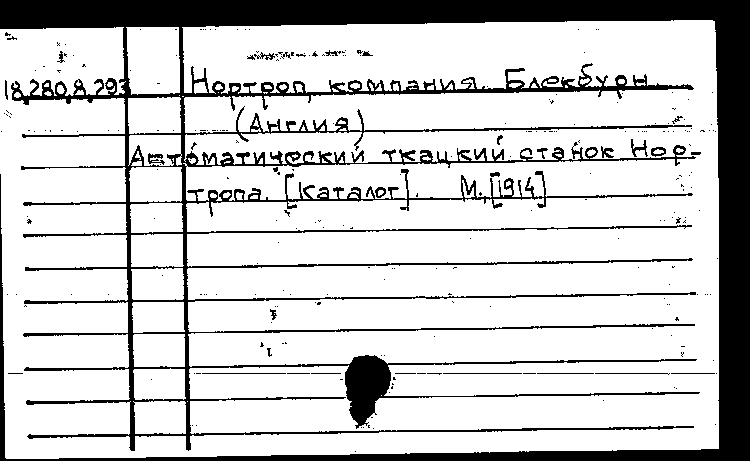 18.280.8.293 Нортроп, компания. Блекбурн
(Англия)
Автоматический ткацкий станок Нор-
тропа. [Каталог]. М., [1914]